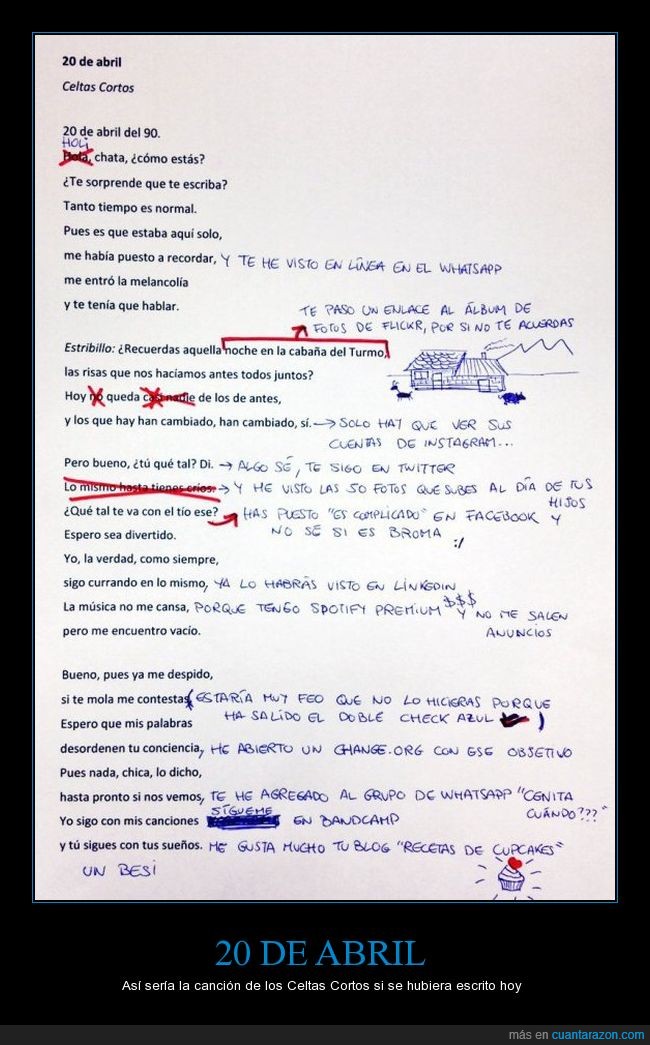 20 de abril
Celtas Cortos
20 de abril del 90.
HOLI
Hola, chata, ¿cómo estás?
¿Te sorprende que te escriba?
Tanto tiempo es normal.
Pues es que estaba aquí solo,
me había puesto a recordar, Y TE HE VISTO EN LÍNEA EN EL WHATSAPP
me entró la melancolía
y te tenía que hablar.
TE PASO UN ENLACE AL ÁLBUM DE
FOTOS DE FLICKR, POR SI NO TE ACUERDAS
Estribillo: ¿Recuerdas aquella noche en la cabaña del Turmo,
las risas que nos hacíamos antes todos juntos?
Hoy no queda casi nadie de los de antes,
y los que hay han cambiado, han cambiado, sí. → SOLO HAY QUE VER SUS
CUENTAS DE INSTAGRAM...
Pero bueno, ¿tú qué tal? Di. → ALGO SÉ, TE SIGO EN TWITTER
Lo mismo hasta tienes críos. → Y HE VISTO LAS 50 FOTOS QUE SUBES AL DÍA DE TUS
HIJOS
¿Qué tal te va con el tío ese? HAS PUESTO "ES COMPLICADO" EN FACEBOOK Y
NO SÉ SI ES BROMA :/
Espero sea divertido.
Yo, la verdad, como siempre,
sigo currando en lo mismo, YA LO HABRÁS VISTO EN LINKEDIN
La música no me cansa, PORQUE TENGO SPOTIFY PREMIUM $$$ Y NO ME SALEN
ANUNCIOS
pero me encuentro vacío.
Bueno, pues ya me despido,
si te mola me contestas (ESTARÍA MUY FEO QUE NO LO HICIERAS PORQUE
HA SALIDO EL DOBLE CHECK AZUL )
Espero que mis palabras
desordenen tu conciencia, HE ABIERTO UN CHANGE.ORG CON ESE OBJETIVO
Pues nada, chica, lo dicho,
hasta pronto si nos vemos, TE HE AGREGADO AL GRUPO DE WHATSAPP "CENITA
CUÁNDO???"
SÍGUEME
Yo sigo con mis canciones EN BANDCAMP
y tú sigues con tus sueños. ME GUSTA MUCHO TU BLOG "RECETAS DE CUPCAKES"
UN BESI
20 DE ABRIL
Así sería la canción de los Celtas Cortos si se hubiera escrito hoy
más en cuantarazon.com